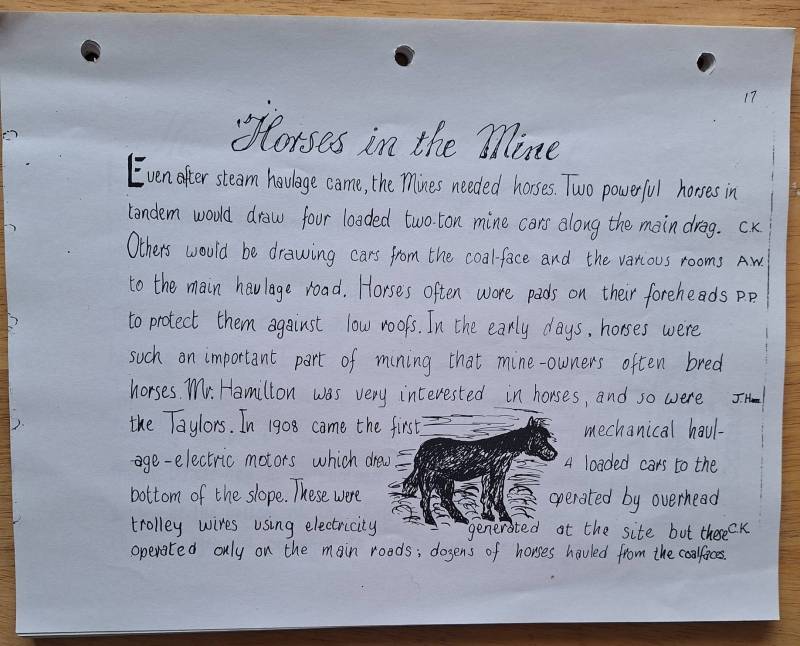 17
Horses in the Mine
Even after steam haulage came, the Mines needed horses. Two powerful horses in
tandem would draw four loaded two-ton mine cars along the main drag. C.K.
Others would be drawing cars from the coal-face and the various rooms A.W.
to the main haulage road. Horses often wore pads on their foreheads P.P.
to protect them against low roofs. In the early days, horses were
such an important part of mining that mine-owners often bred
horses. Mr. Hamilton was very interested in horses, and so were J.H.
the Taylors. In 1908 came the first mechanical haul-
age-electric motors which drew 4 loaded cars to the
bottom of the slope. These were operated by overhead
trolley wires using electricity generated at the site but these C.K.
operated only on the main roads; dozens of horses hauled from the coalfaces.